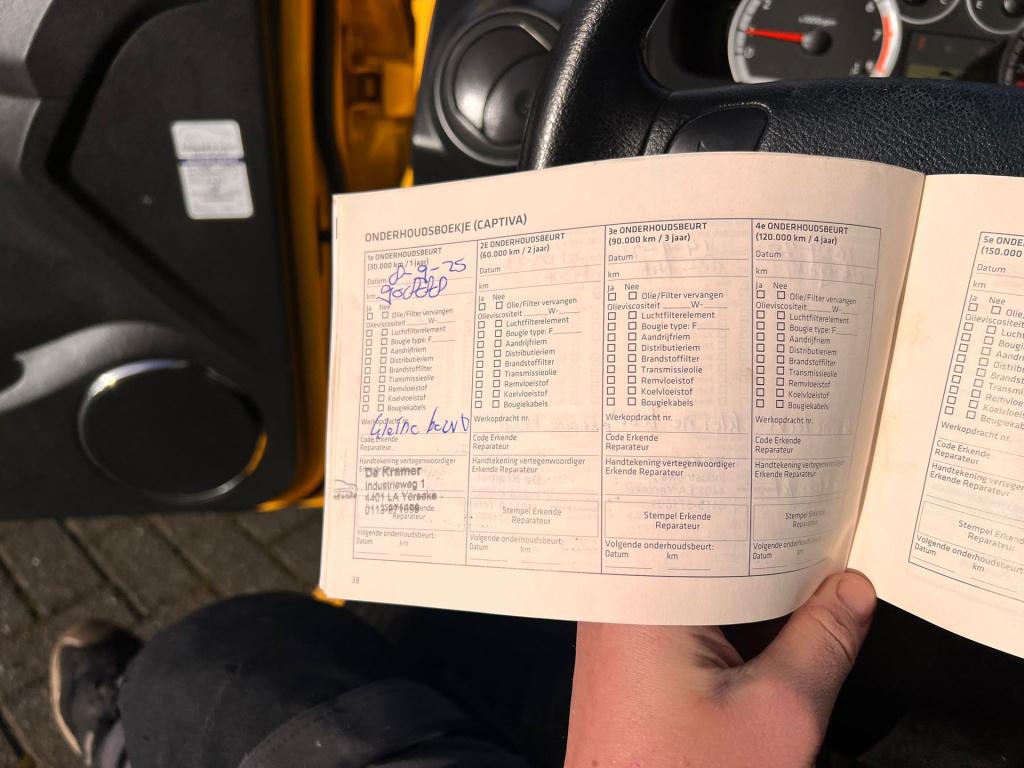 ONDERHOUDSBOEKJE (CAPTIVA)
1e ONDERHOUDSBEURT
(30.000 km / 1 jaar)
Datum 8-9-25
km
Ja Nee
Olie/Filter vervangen
Olieviscositeit W-
Luchtfilterelement
Bougie type: F
Aandrijfriem
Distributieriem
Brandstoffilter
Transmissieolie
Remvloeistof
Koelvloeistof
Bougiekabels
Werkopdracht nr.
kleine beurt
Code Erkende
Reparateur
Handtekening vertegenwoordiger
Erkende Reparateur
De Kramer
Industrieweg 1
4401 LA Yerseke
Reparateur
Volgende onderhoudsbeurt:
Datum km
38
2e ONDERHOUDSBEURT
(60.000 km / 2 jaar)
Datum
km
Ja Nee
Olie/Filter vervangen
Olieviscositeit W-
Luchtfilterelement
Bougie type: F
Aandrijfriem
Distributieriem
Brandstoffilter
Transmissieolie
Remvloeistof
Koelvloeistof
Bougiekabels
Werkopdracht nr.
Code Erkende
Reparateur
Handtekening vertegenwoordiger
Erkende Reparateur
Stempel Erkende
Reparateur
Volgende onderhoudsbeurt:
Datum km
3e ONDERHOUDSBEURT
(90.000 km / 3 jaar)
Datum
km
Ja Nee
Olie/Filter vervangen
Olieviscositeit W-
Luchtfilterelement
Bougie type: F
Aandrijfriem
Distributieriem
Brandstoffilter
Transmissieolie
Remvloeistof
Koelvloeistof
Bougiekabels
Werkopdracht nr.
Code Erkende
Reparateur
Handtekening vertegenwoordiger
Erkende Reparateur
Stempel Erkende
Reparateur
Volgende onderhoudsbeurt:
Datum km
4e ONDERHOUDSBEURT
(120.000 km / 4 jaar)
Datum
km
Ja Nee
Olie/Filter vervangen
Olieviscositeit W-
Luchtfilterelement
Bougie type: F
Aandrijfriem
Distributieriem
Brandstoffilter
Transmissieolie
Remvloeistof
Koelvloeistof
Bougiekabels
Werkopdracht nr.
Code Erkende
Reparateur
Handtekening vertegenwoordiger
Erkende Reparateur
Stempel Erkende
Reparateur
Volgende onderhoudsbeurt:
Datum km
5e ONDERHOUD
(150.000
Datum
km
Ja Nee
Olie/
Olieviscositeit
Lucht
Bougi
Aandr
Distrib
Brands
Transmis
Remvloe
Koelvloei
Bougiekab
Werkopdracht nr.
Code Erkende
Reparateur
Handtekening vertegen
Erkende Reparateur
Stempel Erkend
Reparateur
Volgende onderhoudsbeurt
Datum km